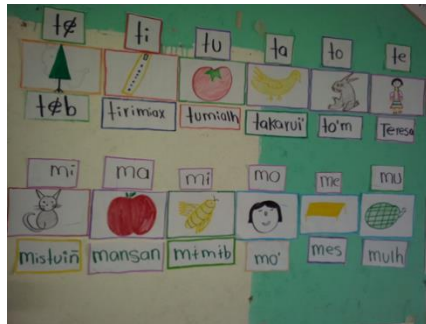 tɇ ti tu ta to te
tɇb tirimiax tumialh takarui' to'm Teresa
mi ma mi mo me mu
mistuiñ mansan mɨmɨb mo' mes mulh